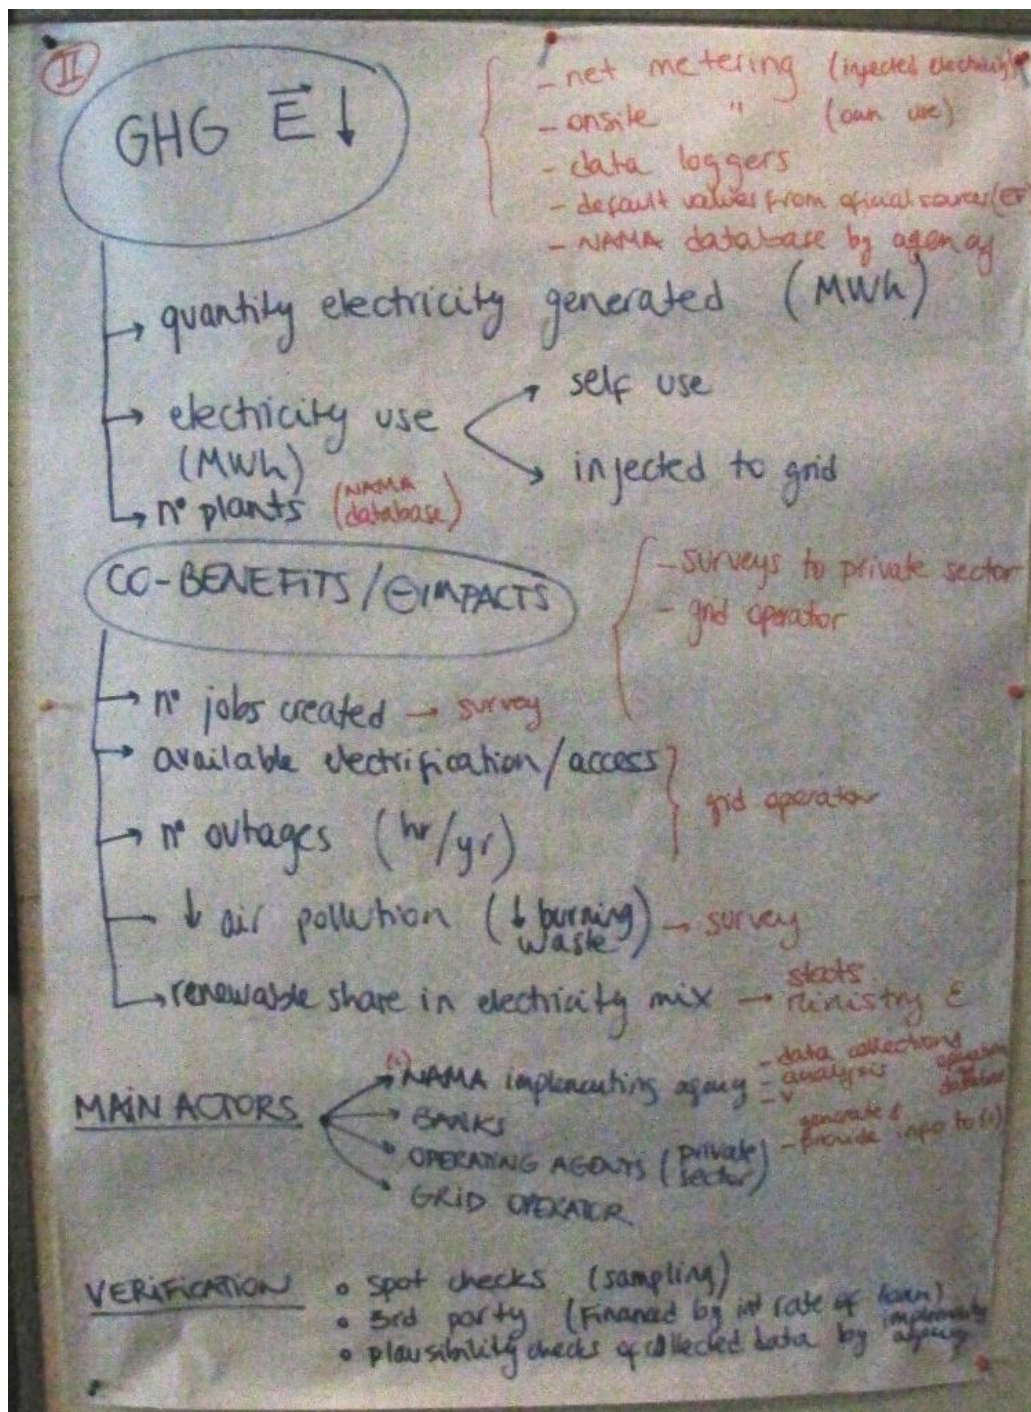 II
GHG E ↓
- net metering (injected electricity)
- onsite " (own use)
- data loggers
- default values from oficial sources (EF
- NAMA database by agency
→ quantity electricity generated (MWh)
→ electricity use
(MWh)
→ self use
→ injected to grid
→ nº plants (NAMA
database)
CO-BENEFITS/⊖IMPACTS
- surveys to private sector
- grid operator
→ nº jobs created → survey
→ available electrification/access
grid operator
→ nº outages (hr/yr)
↓ air pollution (↓ burning
waste) → survey
→ renewable share in electricity mix → stats
ministry E
MAIN ACTORS
(1) NAMA implementing agency
- data collections
- analysis
- V
database
BANKS
OPERATING AGENTS (private
sector)
generate &
- provide info to (1)
GRID OPERATOR
VERIFICATION
o spot checks (sampling)
o 3rd party (Financed by int rate of loan)
o plausibility checks of collected data by implementing
agency